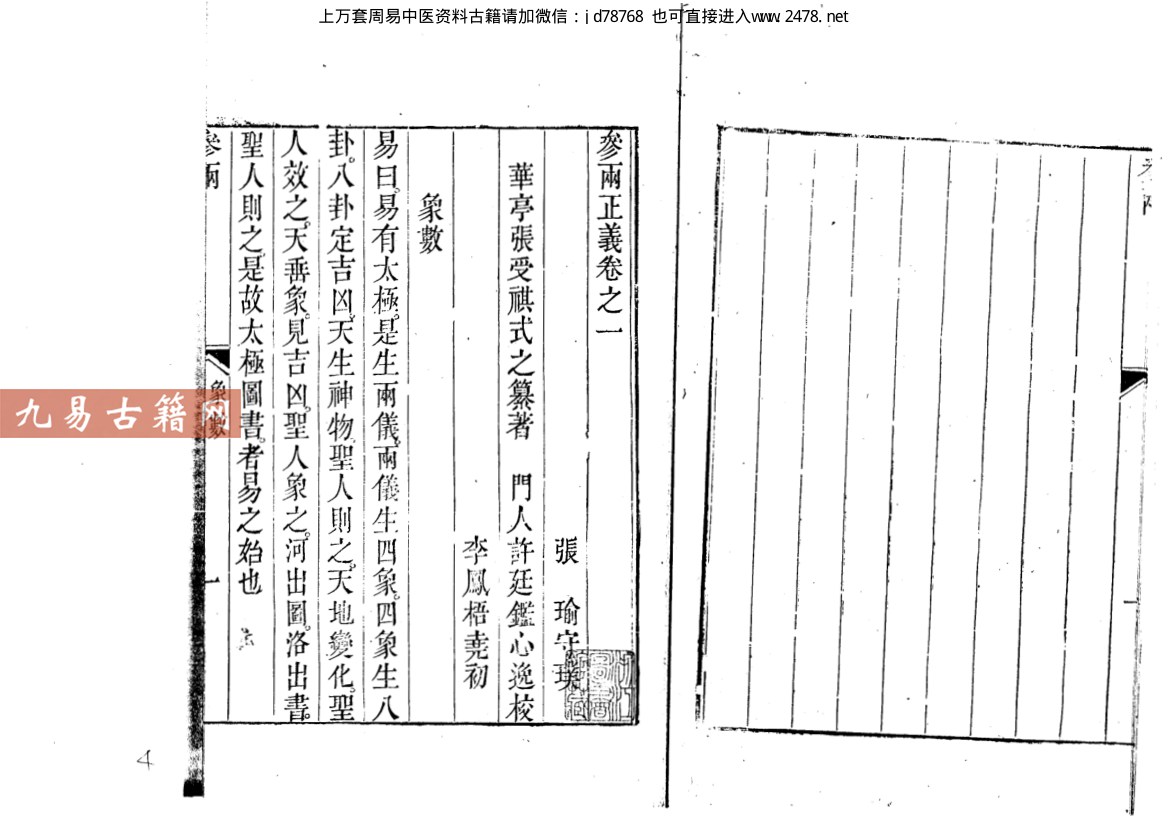 上万套周易中医资料古籍请加微信：jd78768 也可直接进入www.2478.net
參兩正義卷之一
張 瑜守璞
華亭張受祺式之纂著 門人許廷鑑心逸校
李鳳梧堯初
象數
易曰。易有太極。是生兩儀。兩儀生四象。四象生八
卦。八卦定吉凶。天生神物。聖人則之。天地變化。聖
人效之。天垂象。見吉凶。聖人象之。河出圖。洛出書。
聖人則之。是故太極圖書。者易之始也
參兩
象數
一
九易古籍网
4